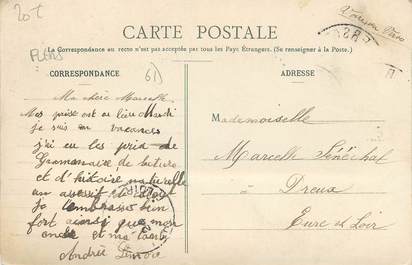 20 t
CARTE POSTALE
La Correspondance au recto n'est pas acceptée par tous les Pays Étrangers. (Se renseigner à la Poste.)
FLERS
61
CORRESPONDANCE
Ma chère Marcelle
Mes prix ont eu lieu
je suis en vacances
j'ai eu les prix de
Grammaire de lecture
et d'histoire naturelle
un
je t'embrasse bien
fort ainsi que mon
oncle et ma tante
Andrée
ADRESSE
Mademoiselle
Marcelle Sénéchal
à Dreux
Eure et Loir